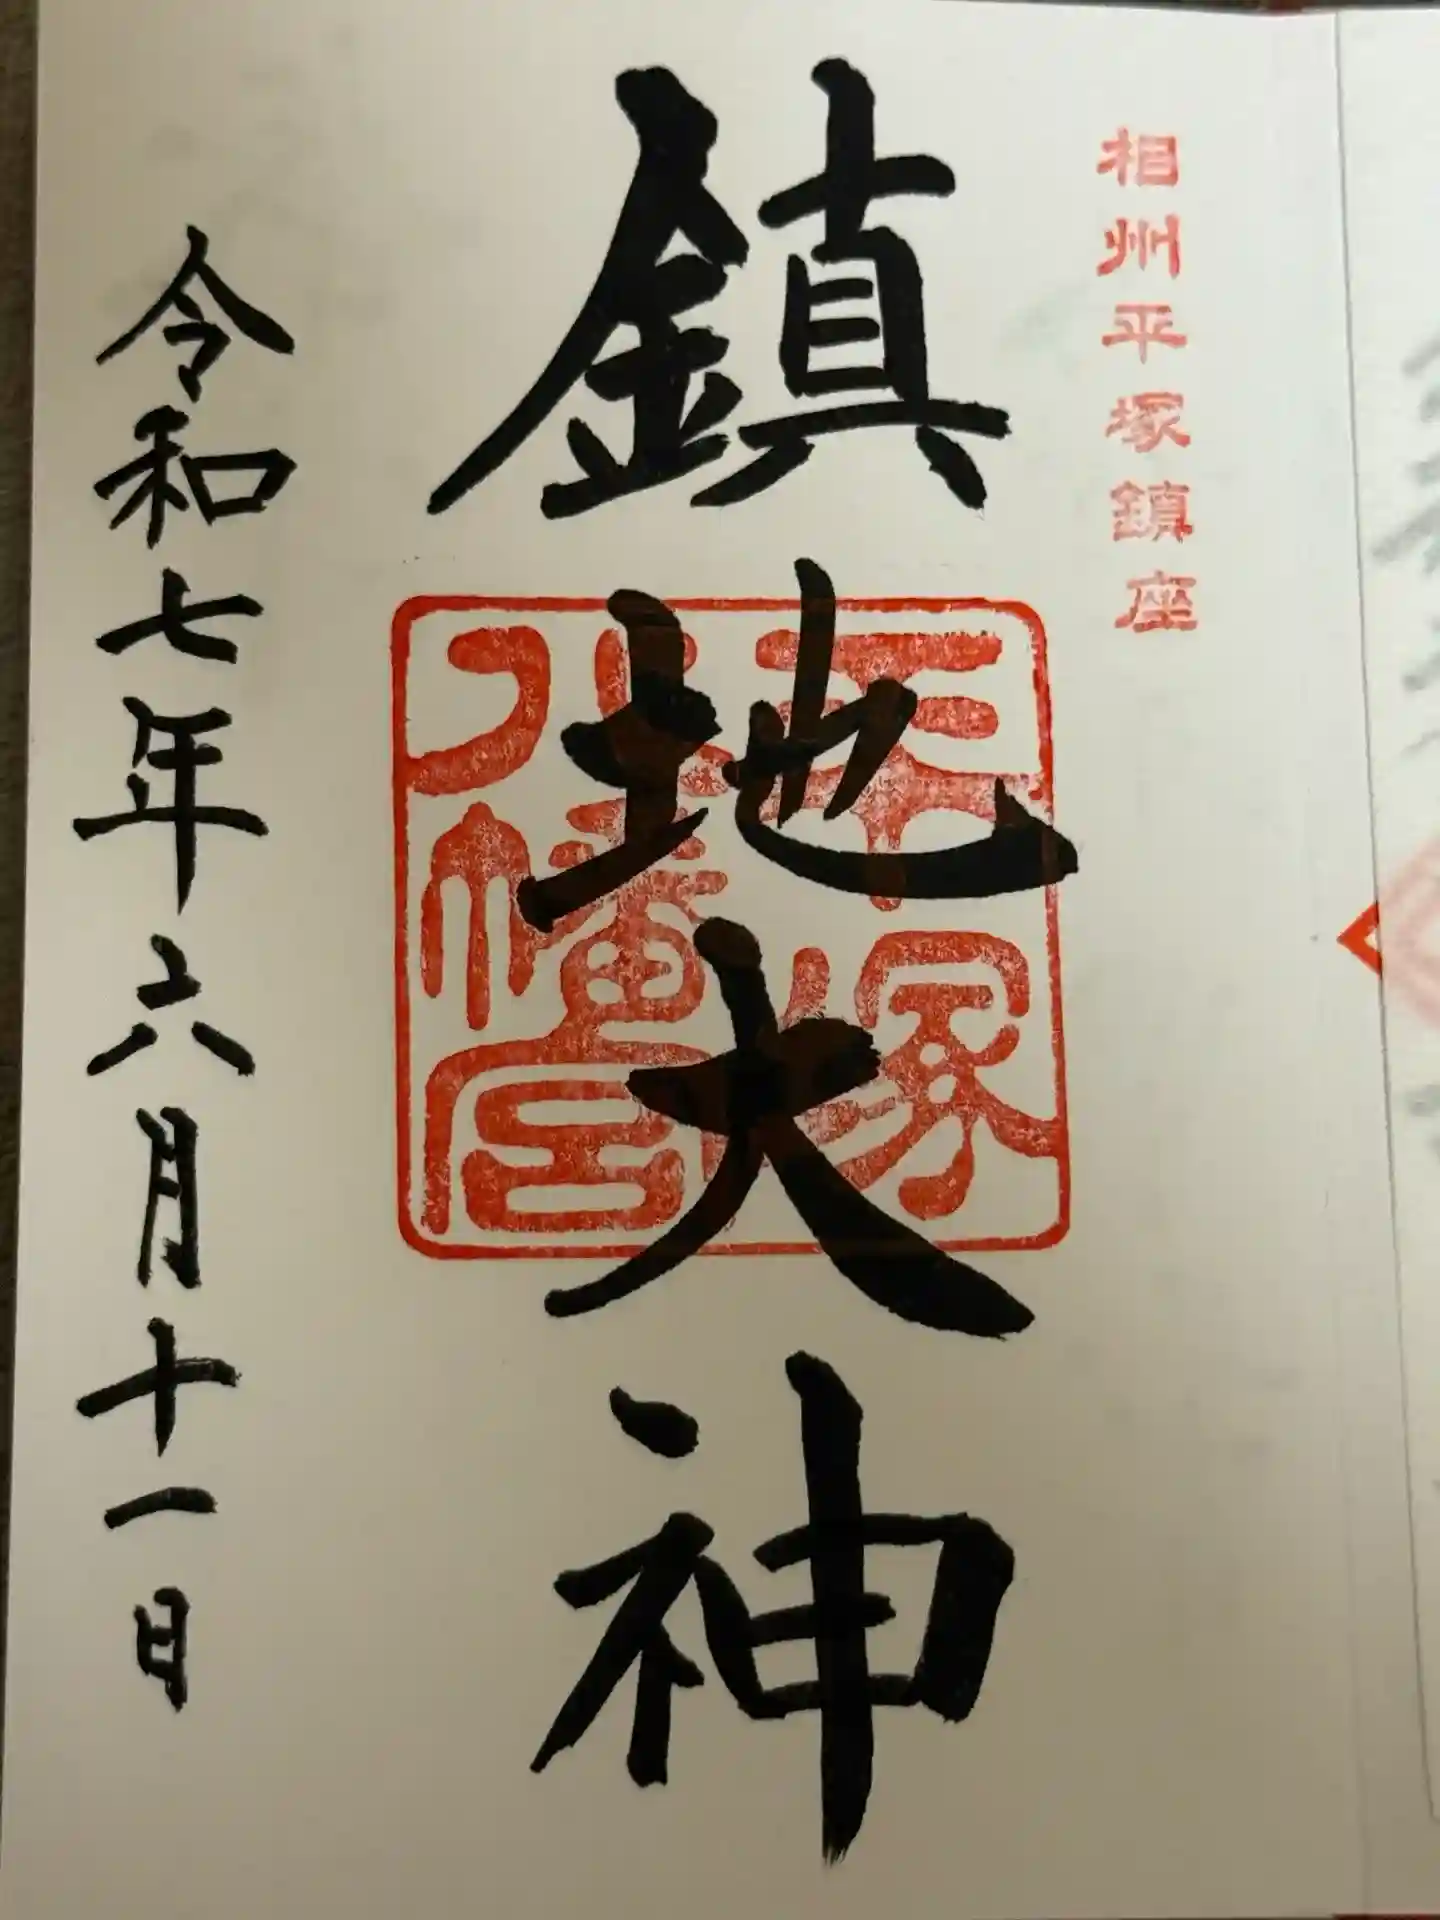 相州平塚鎮座
鎮地大神
平塚
八幡宮
令和七年六月十一日